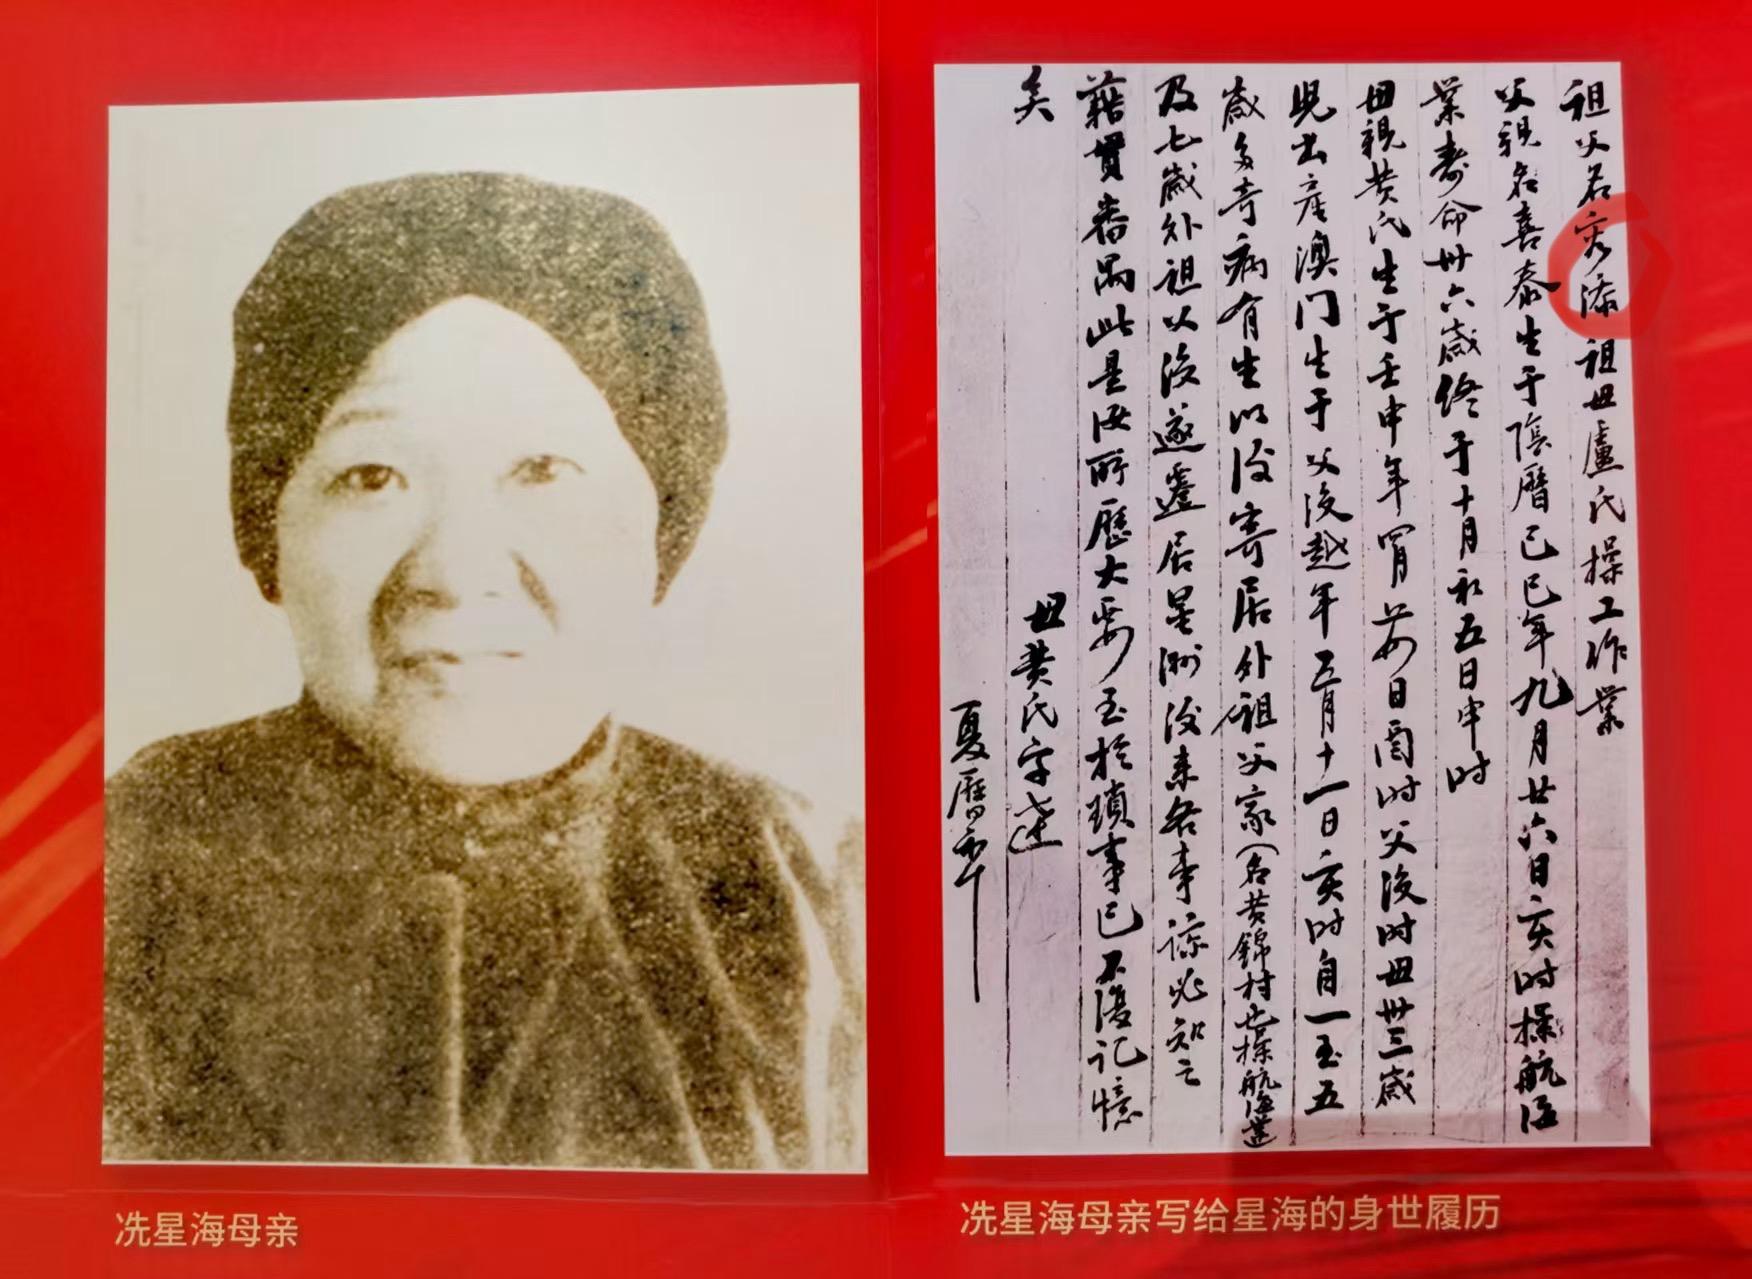 祖父名 添祖母盧氏操工作業
父親名喜泰生于陰曆己巳年九月廿六日亥时操航海
業寿命卅六歲終于十月初五日申时
母親黄氏生于壬申年 日酉时父没时母卅三歲
児出産澳门生于父没越年五月十一日亥时自一至五
歲多奇病有生以後寄居外祖父家（名黄錦村也操航海業
及七歲外祖父没遂遷居星洲後来各事諒必知之
藉貫番禺此是汝所歷大要至於瑣事已不復記憶
矣
母黄氏字達
夏曆
冼星海母亲
冼星海母亲写给星海的身世履历